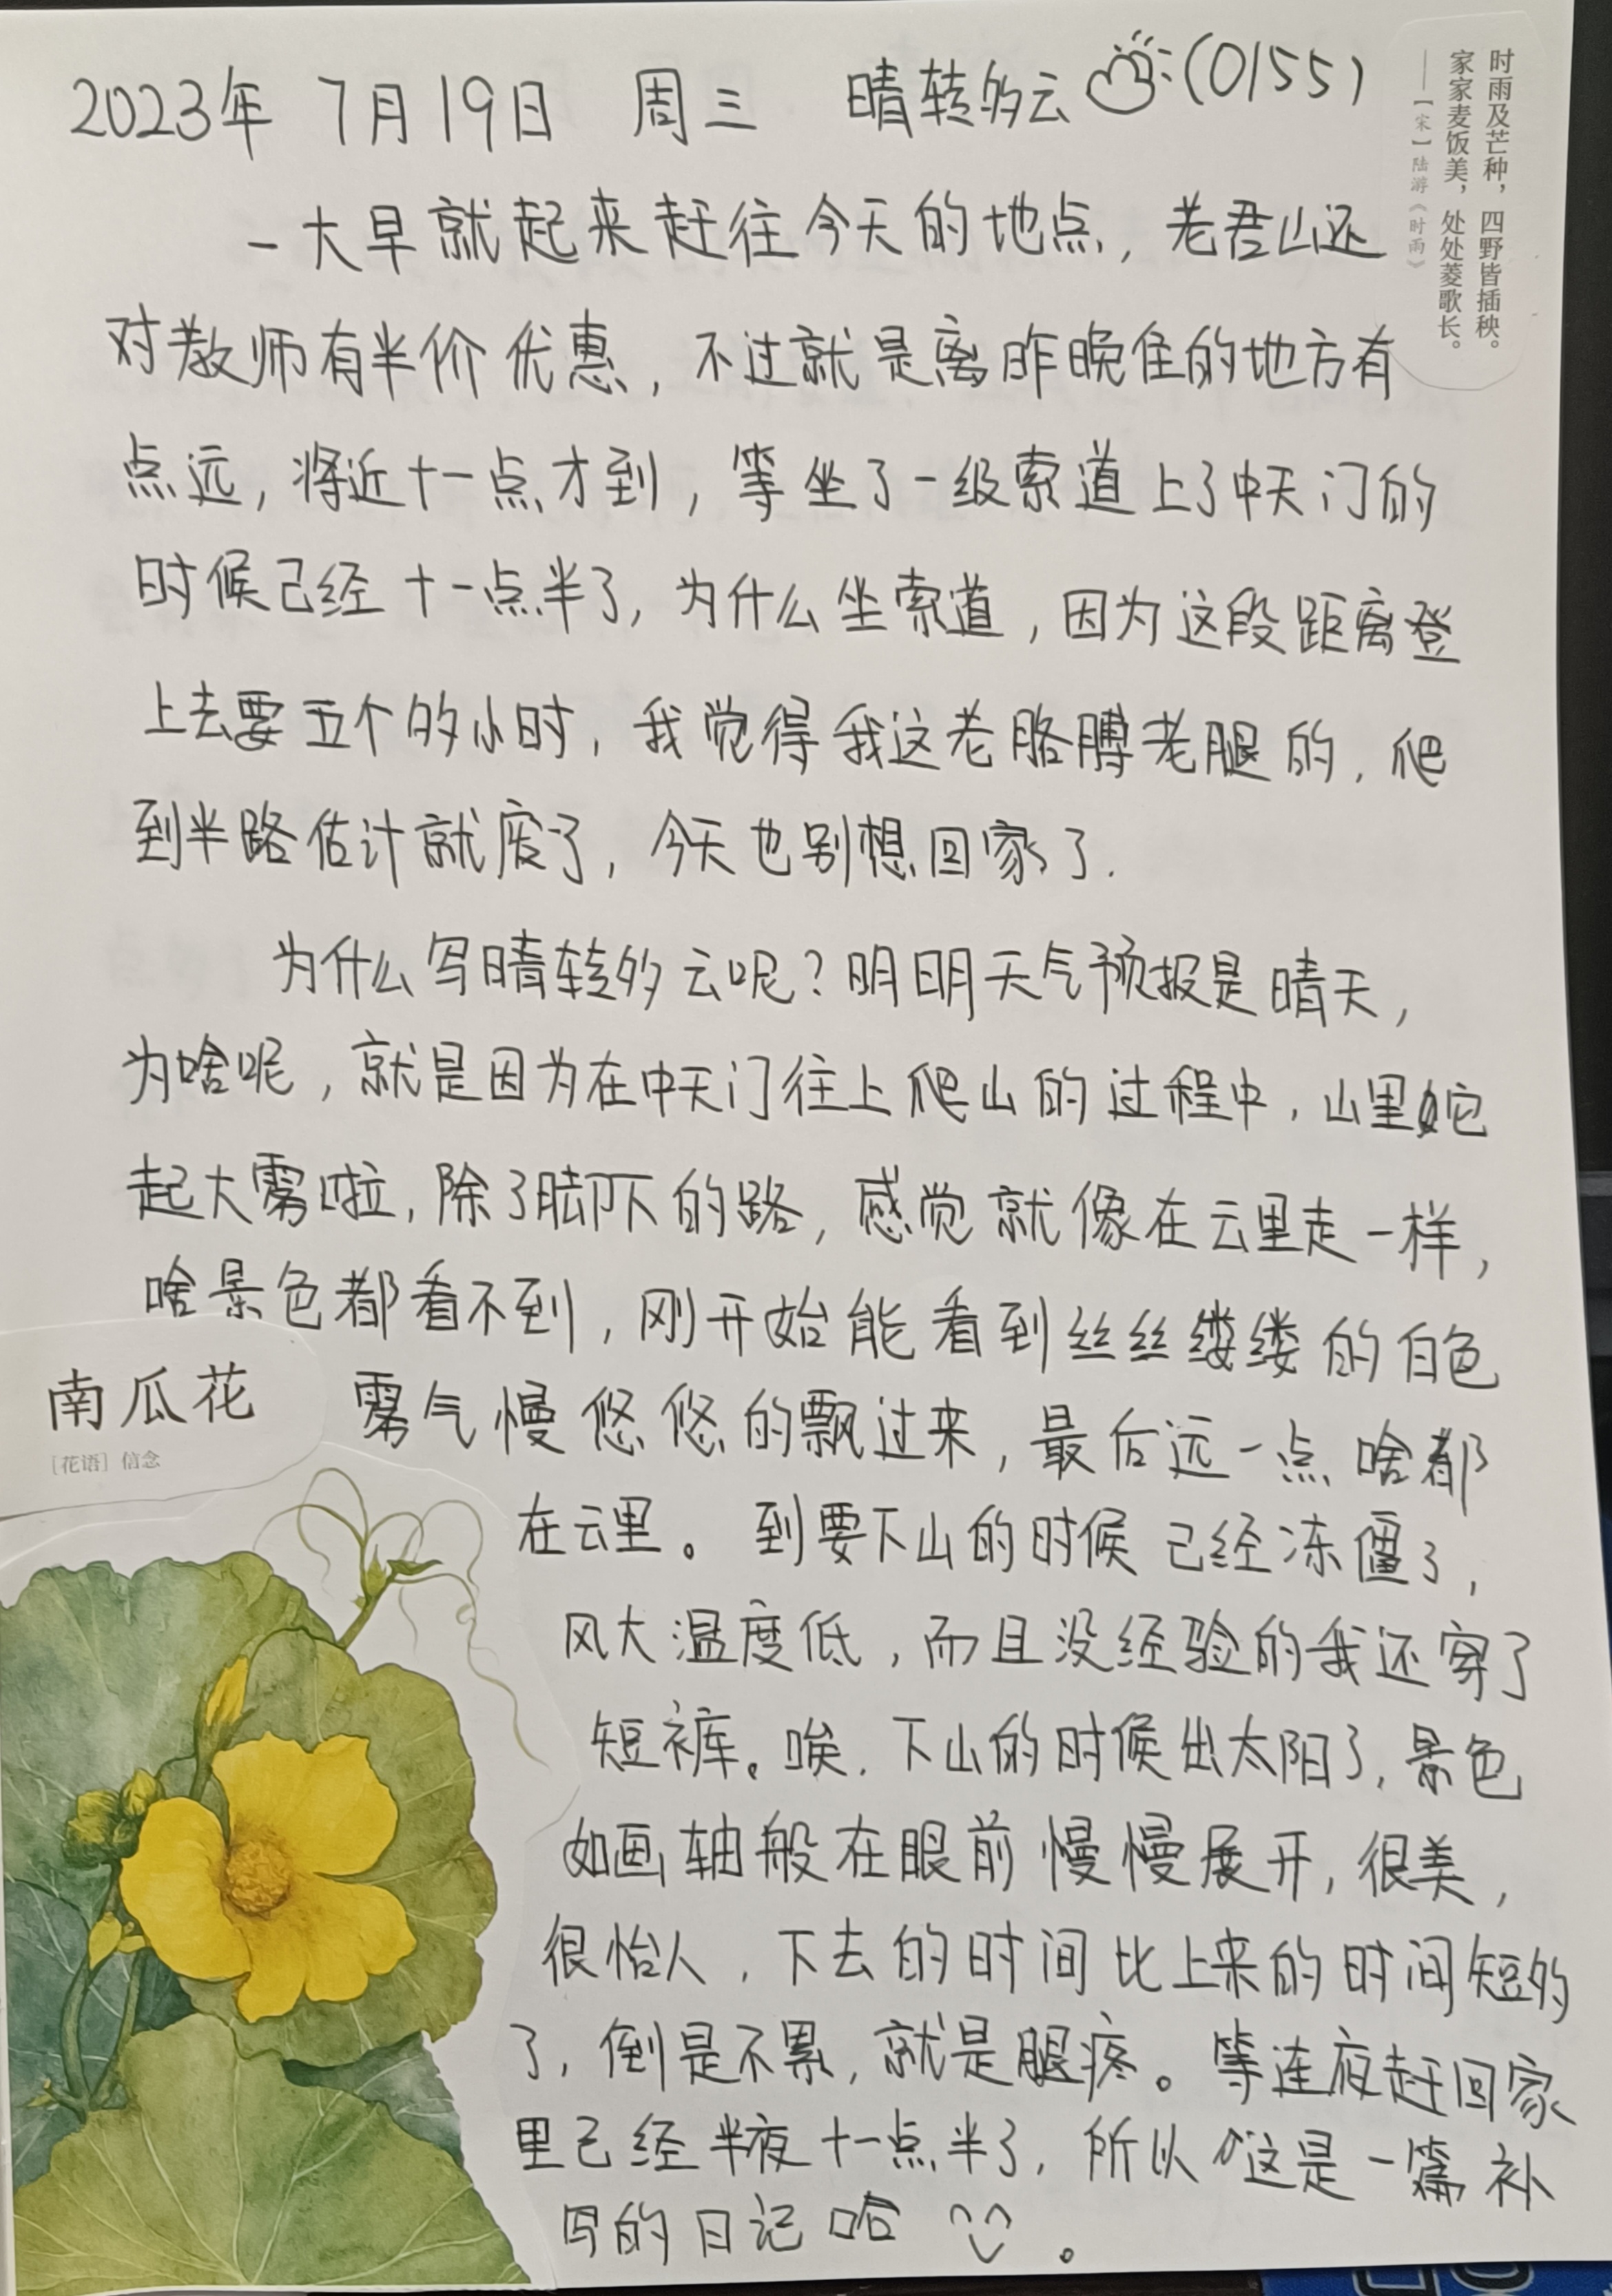 2023年 7月19日 周三 晴转多云 (0155)
时雨及芒种，四野皆插秧。
家家麦饭美，处处菱歌长。
——【宋】陆游《时雨》
一大早就起来赶往今天的地点，老君山还
对教师有半价优惠，不过就是离昨晚住的地方有
点远，将近十一点才到，等坐了一级索道上了中天门的
时候已经十一点半了，为什么坐索道，因为这段距离登
上去要五个多小时，我觉得我这老胳膊老腿的，爬
到半路估计就废了，今天也别想回家了.
为什么写晴转多云呢？明明天气预报是晴天，
为啥呢，就是因为在中天门往上爬山的过程中，山里
起大雾啦，除了脚下的路，感觉就像在云里走一样，
啥景色都看不到，刚开始能看到丝丝缕缕的白色
雾气慢悠悠的飘过来，最后远一点啥都
在云里。到要下山的时候已经冻僵了，
风大温度低，而且没经验的我还穿了
短裤。唉，下山的时候出太阳了，景色
如画轴般在眼前慢慢展开，很美，
很怡人，下去的时间比上来的时间短多
了，倒是不累，就是腿疼。等连夜赶回家
里已经半夜十一点半了，所以这是一篇补
写的日记哈 。
南瓜花
［花语］信念